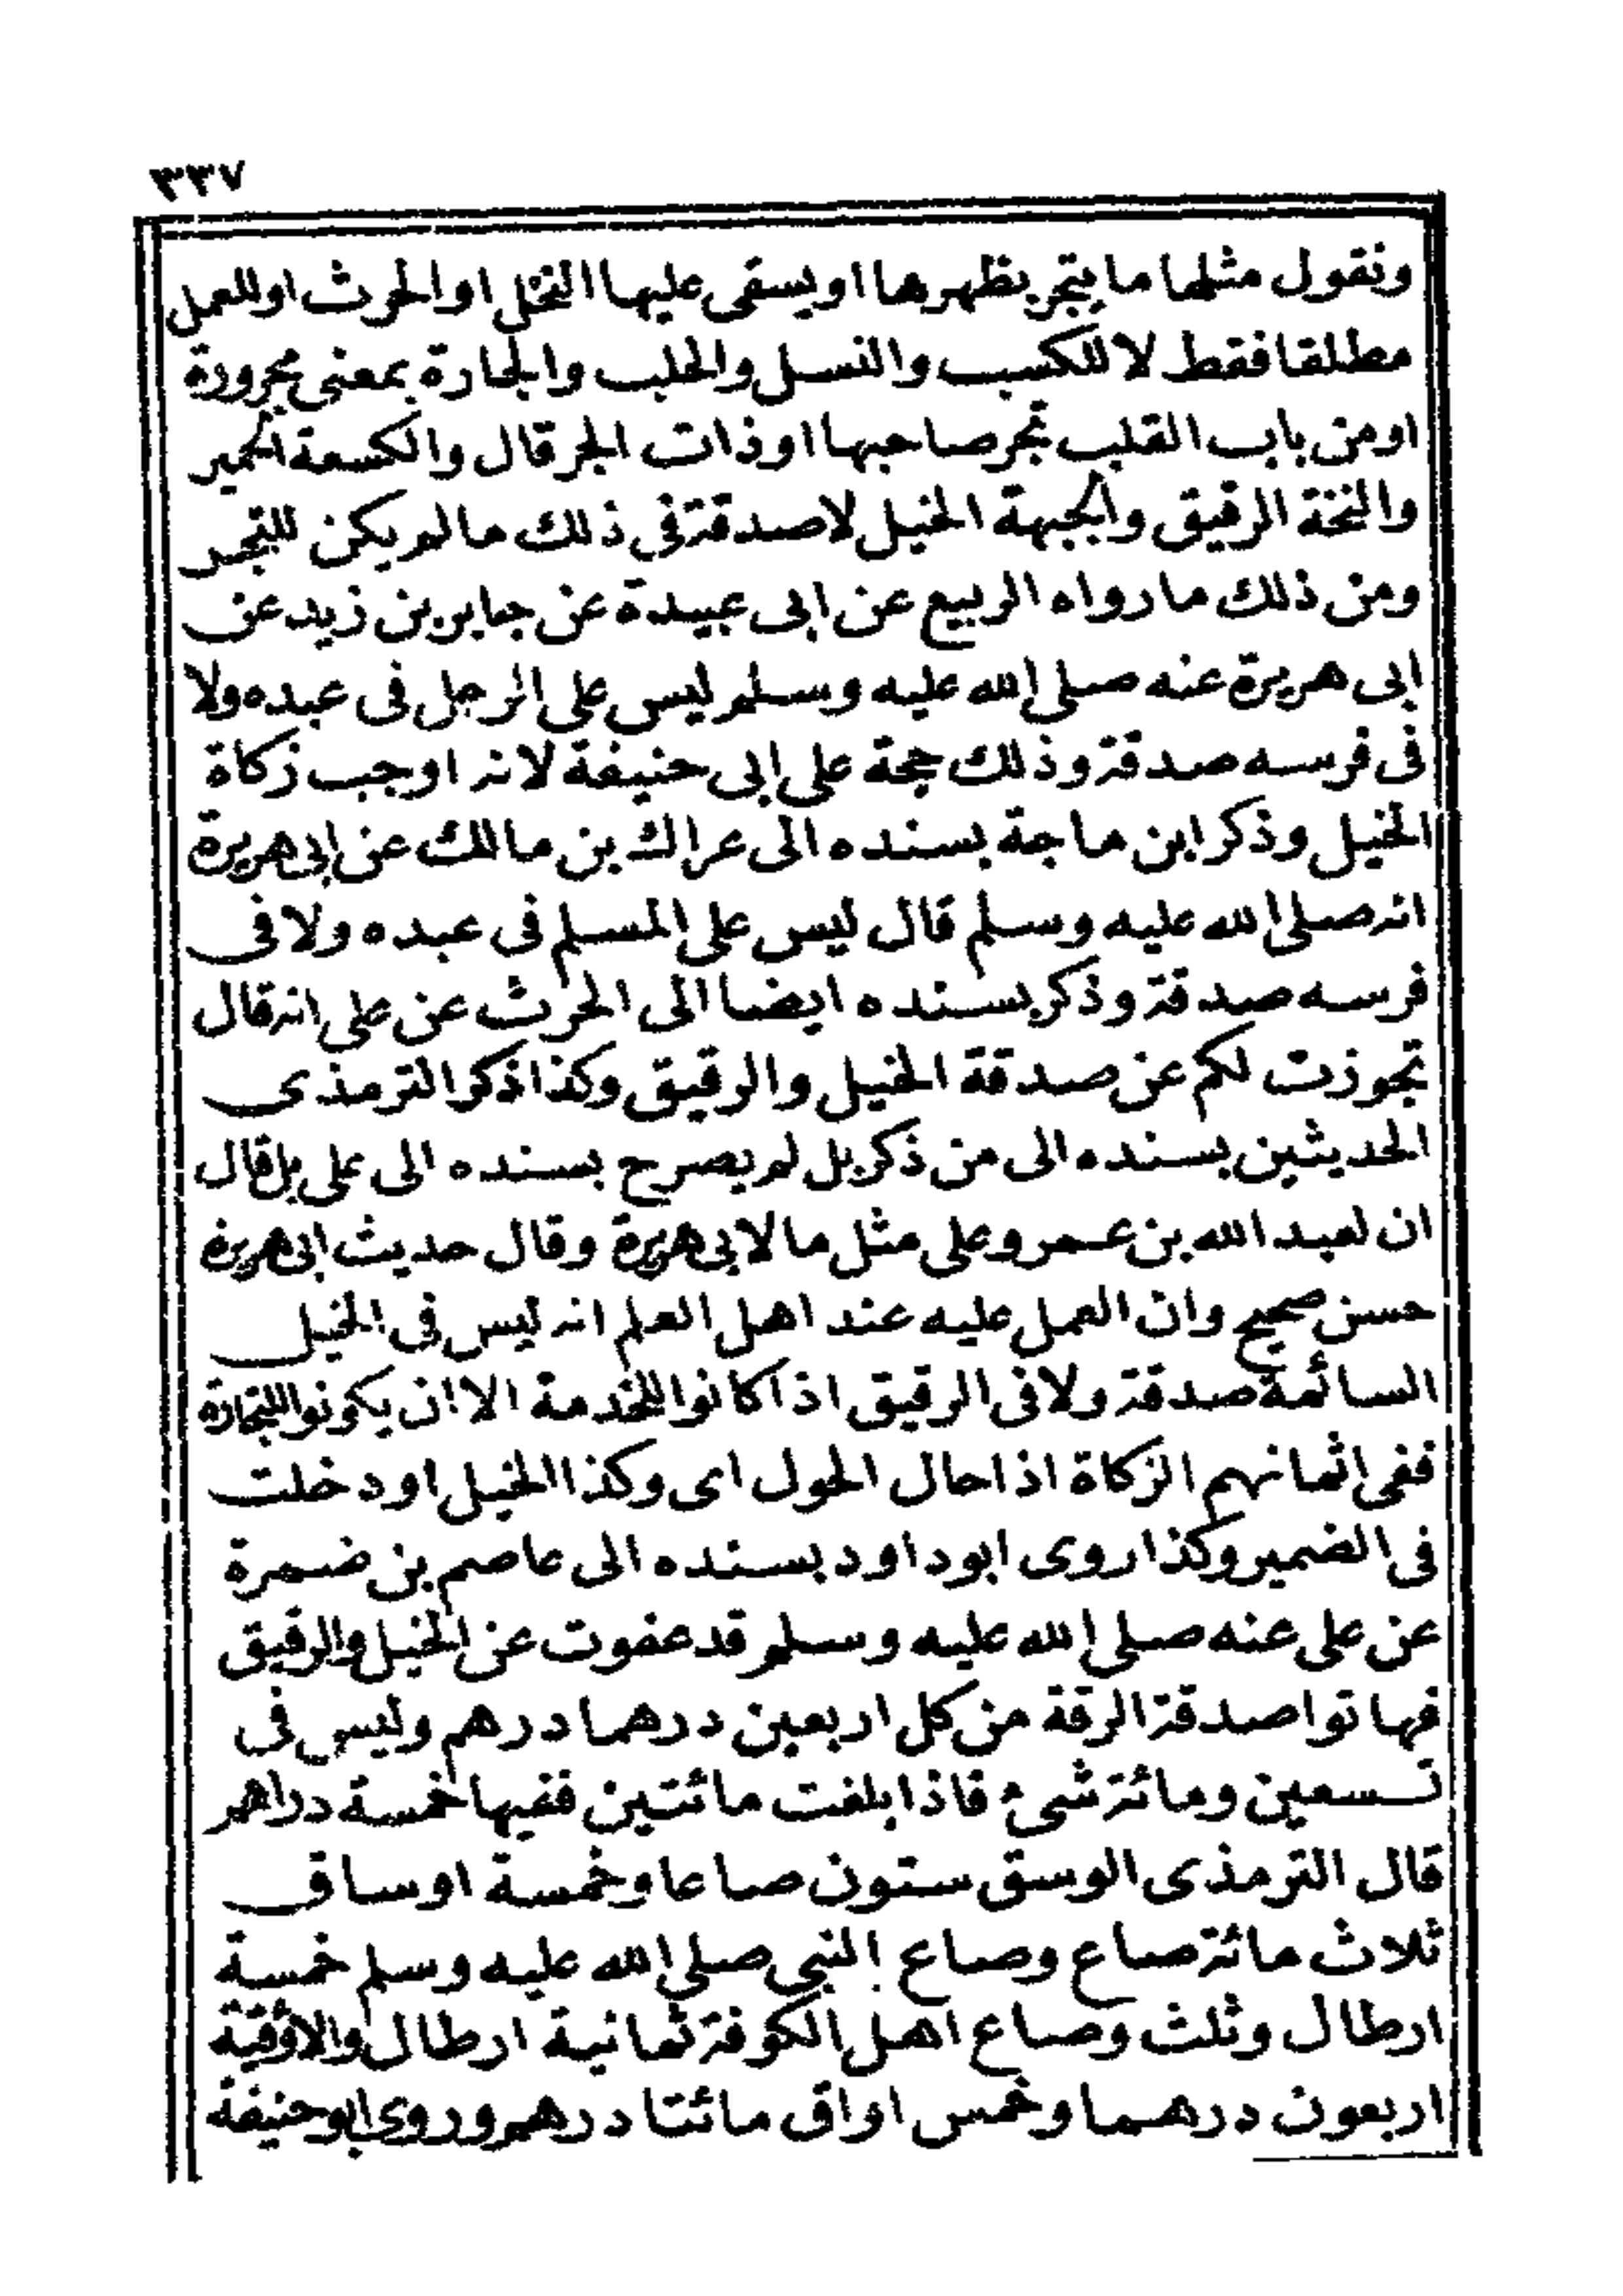 ٣٣٧
ونقول مثلها ما يتجر بظهرها او يسقى عليها النخل او الحرث او للعمل
مطلقا فقط لا للكسب والنسل والحلب والجارة بمعنى مجرورة
او من باب القلب تجر صاحبها او ذات الجر قال والكسعة الحمير
والنخة الرقيق والجبهة الخيل لا صدقة في ذلك ما لم يكن للتجر
ومن ذلك ما رواه الربيع عن ابى عبيدة عن جابر بن زيد عن
ابى هريرة عنه صلى الله عليه وسلم ليس على الرجل فى عبده ولا
فى فرسه صدقة وذلك حجة على ابى حنيفة لانه اوجب زكاة
الخيل وذكر ابن ماجة بسنده الى عراك بن مالك عن ابى هريرة
انه صلى الله عليه وسلم قال ليس على المسلم فى عبده ولا فى
فرسه صدقة وذكر بسنده ايضا الى الحرث عن على انه قال
تجوزت لكم عن صدقة الخيل والرقيق وكذا ذكر الترمذى
الحديثين بسنده الى من ذكر بل لم يصرح بسنده الى على بل قال
ان لعبد الله بن عمر وعلى مثل ما لابى هريرة وقال حديث ابى هريرة
حسن صحيح وان العمل عليه عند اهل العلم انه ليس فى الخيل
السائمة صدقة ولا فى الرقيق اذا كانوا للخدمة الا ان يكونوا للتجارة
ففى اثمانهم الزكاة اذا حال الحول اى وكذا الخيل او دخلت
فى الضمير وكذا روى ابو داود بسنده الى عاصم بن ضمرة
عن على عنه صلى الله عليه وسلم قد عفوت عن الخيل والرقيق
فهاتوا صدقة الرقة من كل اربعين درهما درهم وليس فى
تسعين ومائة شىء فاذا بلغت مائتين ففيها خمسة دراهم
قال الترمذى الوسق ستون صاعا وخمسة اوساق
ثلاث مائة صاع وصاع النبى صلى الله عليه وسلم خمسة
ارطال وثلث وصاع اهل الكوفة ثمانية ارطال والاوقية
اربعون درهما وخمس اواق مائتا درهم وروى ابو حنيفة